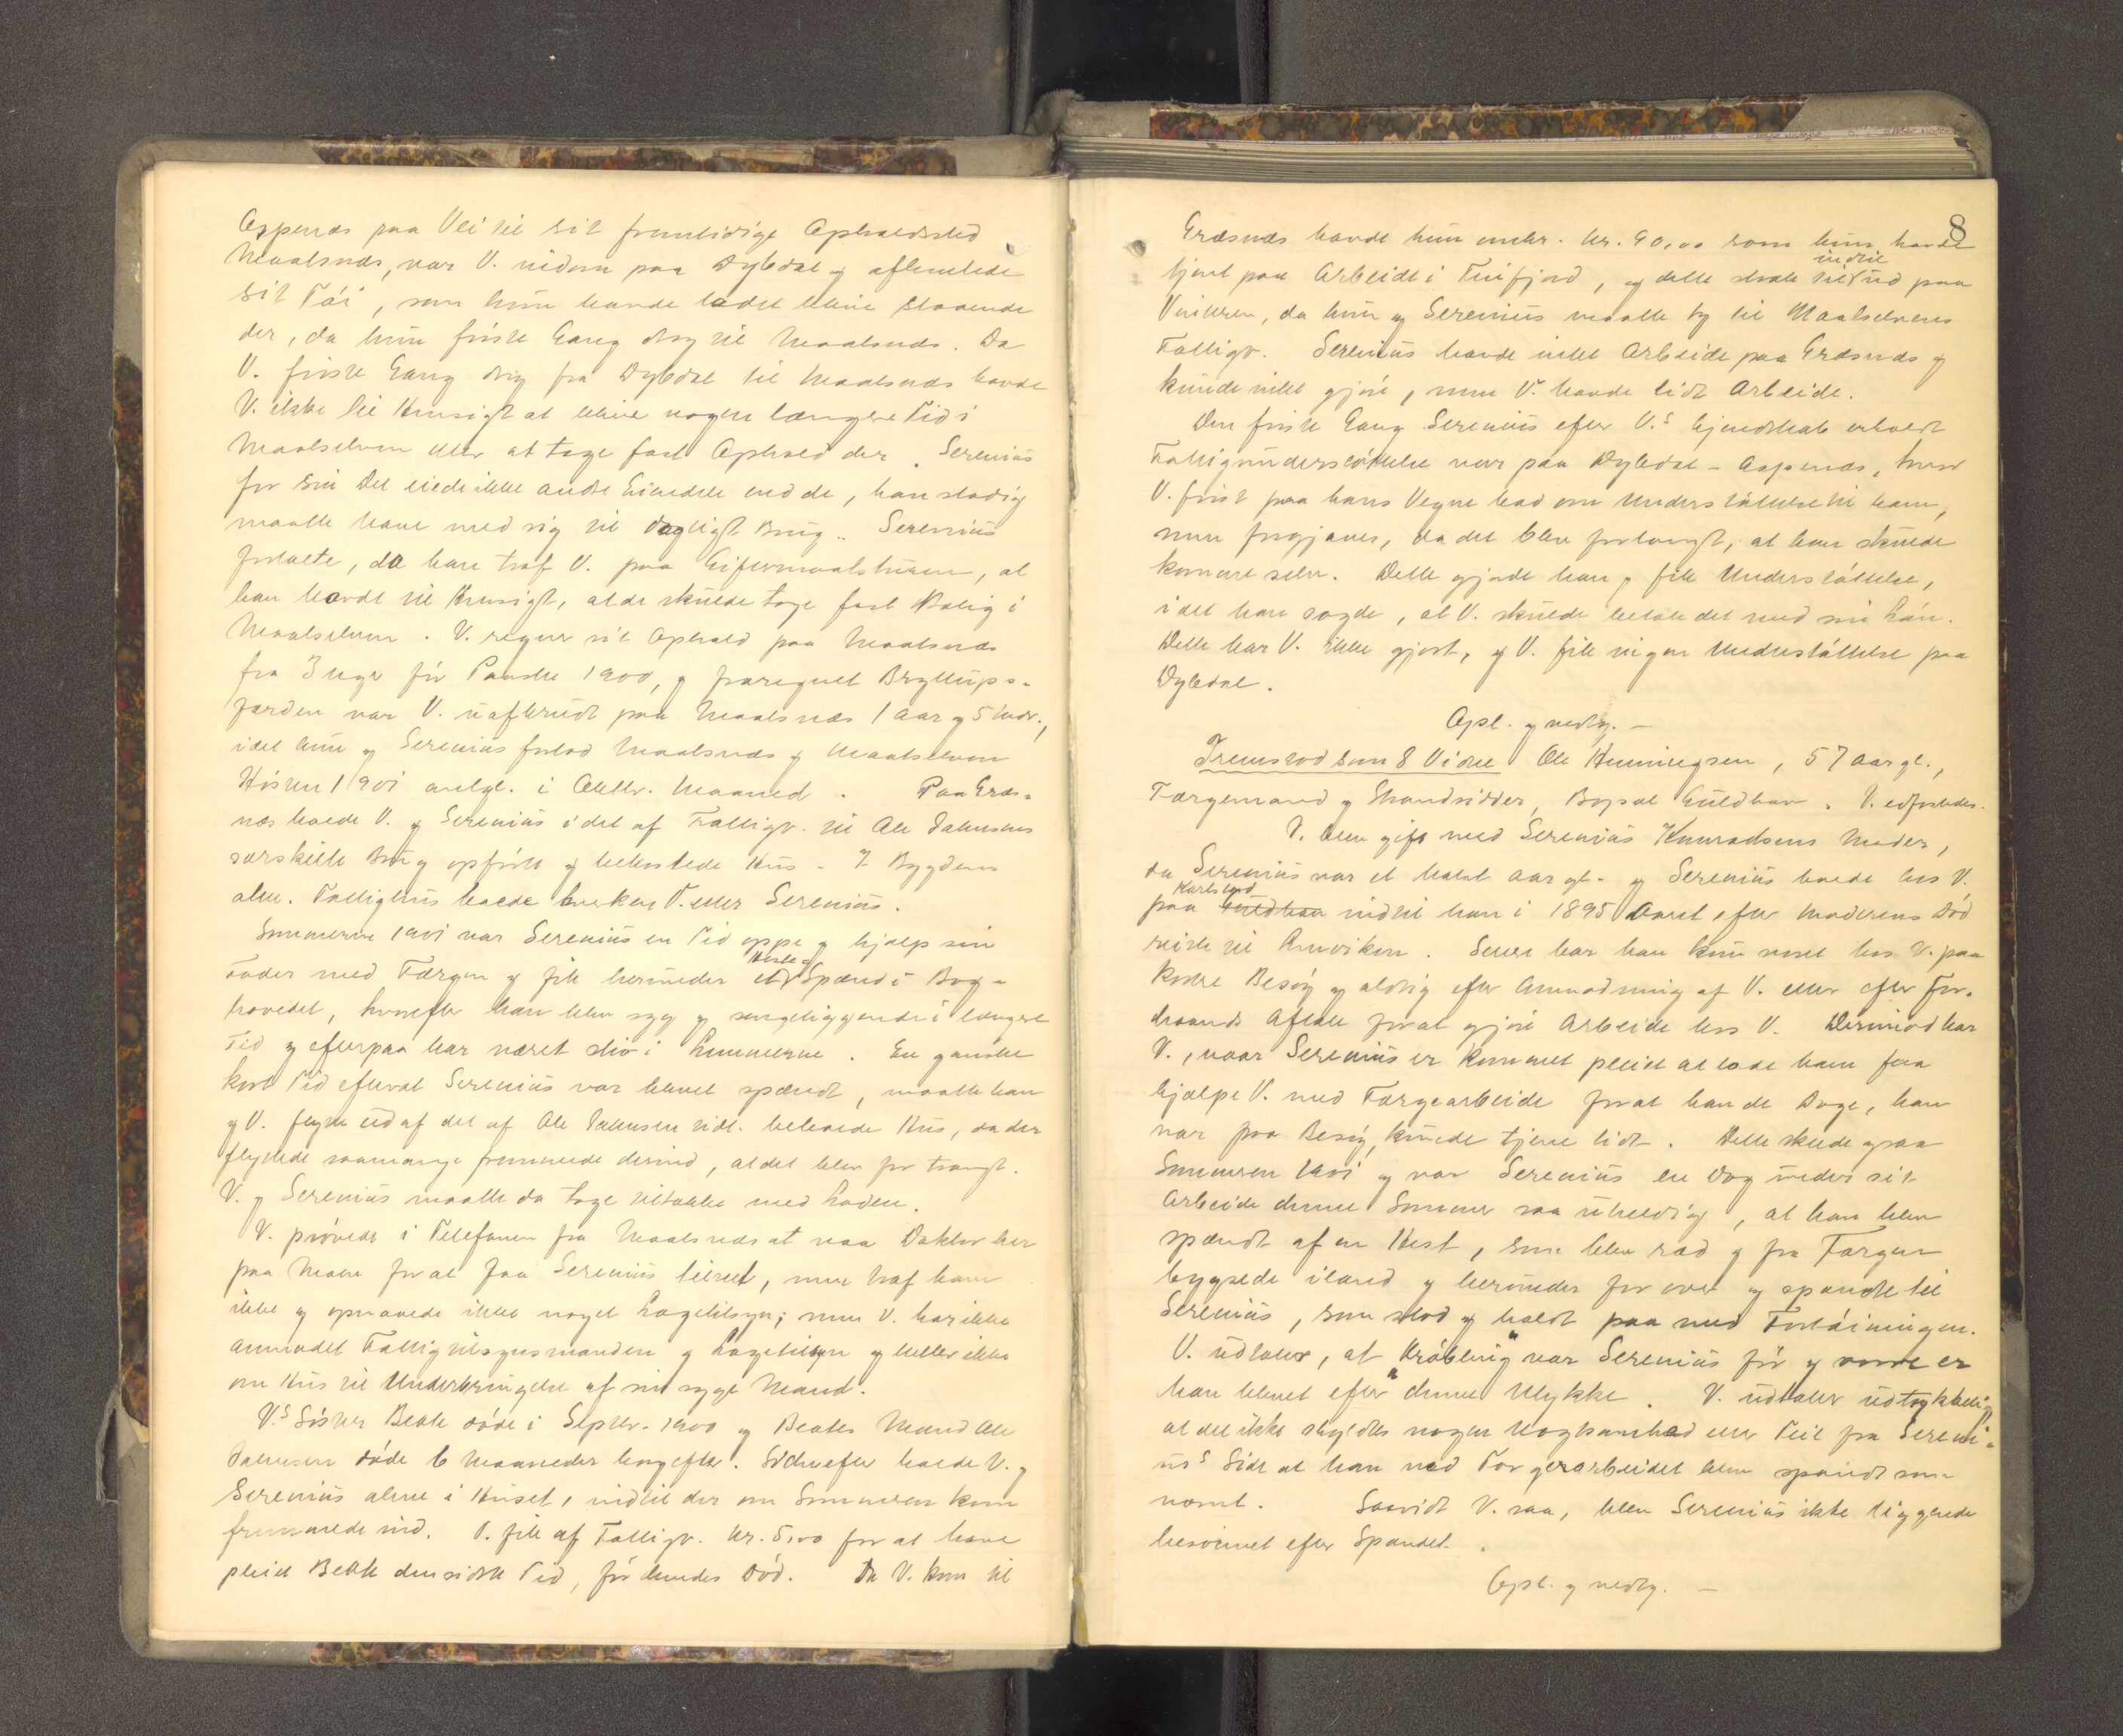 Aspenæs paa Vei til sit fremtidige Opholdssted
Maalsnæs, var V. indom paa Dybdal og afhentede
sit Tøi, som hun havde ladet blive staaende
der, da hun første Gang drog til Maalsnæs. Da
V. første Gang drog fra Dybdal til Maalsnæs havde
V. ikke til Hensigt at blive nogen længere Tid i
Maalselven eller at tage fast Ophold der. Serenius
for sin Del eiede ikke andre Eiendele end de, han stadig
maatte have med sig til dagligt Brug. Serenius
fortalte, da han traf V. paa Giftermaalsturen, at
han havde til Hensigt, at de skulde tage fast Bolig i
Maalselven. V. regner sit Ophold paa Maalsnæs
fra 3 Uger før Paaske 1900, og fraregnet Bryllups-
færden var V. uafbrudt paa Maalsnæs 1 Aar og 5 Mdr.,
idet hun og Serenius forlod Maalsnæs og Maalselven
Høsten 1901 antgl. i Oktbr. Maaned. Paa Græs-
næs boede V. og Serenius i det af Fattigv. til Ole Dahlsens
særskilte Brug opførte og bekostede Hus. I Bygdens
alm. Fattighus boede hverken V. eller Serenius.
Sommeren 1901 var Serenius en Tid oppe og hjalp sin
Fader med Færgen og fik herunder et Heste- Spænd i Bag-
hovedet, hvorefter han blev syg og sengeliggende i længere
Tid og efterpaa har været stiv i Lemmerne. En ganske
kort Tid efterat Serenius var blevet spændt, maatte han
og V. flytte ud af det af Ole Dahlsen tidl. beboede Hus, da der
flyttede saamange fremmede derind, at det blev for trangt.
V. og Serenius maatte da tage tiltakke med Laden.
V. prøvede i Telefonen fra Maalsnæs at naa Doktor her
paa Moen for at faa Serenius tilseet, men traf ham
ikke og opnaaede ikke noget Lægetilsyn; men V. har ikke
anmodet Fattigtilsynsmanden og Lægetilsyn og heller ikke
om Hus til Underbringelse af sin syge Mand.
V.s Søster Beate døde i Septbr. 1900 og Beates Mand Ole
Dahlsen døde 6 Maaneder bagefter. Siden efter boede V. og
Serenius alene i Huset, indtil der om Sommeren kom
fremmede ind. V. fik af Fattigv. Kr. 5,00 for at have
pleiet Beate den sidste Tid, før hendes Død. Da V. kom til
8
Græsnæs havde hun omkr. Kr. 90,00 som hun havde
tjent paa Arbeide i Finfjord, og dette strak til indtil ud paa
Vinteren, da hun og Serenius maatte ty til Maalselvens
Fattigv. Serenius havde intet Arbeide paa Græsnæs og
kunde intet gjøre, men V. havde lidt Arbeide.
Den første Gang Serenius efter V.s Kjendskab erholdt
Fattigunderstøttelse var paa Dybdal - Aspenæs, hvor
V. først paa hans Vegne bad om Understøttelse til ham,
men forgjæves, da det blev forlangt, at han skulde
komme selv. Dette gjorde han og fik Understøttelse,
idet han sagde, at V. skulde betale det med sin Løn.
Dette har V. ikke gjort, og V. fik ingen Understøttelse paa
Dybdal.
Opl. og vedtg. —
Fremstod som 8 Vidne Ole Henningsen, 57 Aar gl.,
Færgemand og Strandsidder, Bopæl Guldhav. V. edfæstedes.
V. blev gift med Serenius Konradsens Moder,
da Serenius var et halvt Aar gl. og Serenius boede hos V.
paa Karlstad indtil han i 1895 Aaret efter Moderens Død
reiste til Lenviken. Senere har han kun været hos V. paa
kortere Besøg og aldrig efter Anmodning af V. eller efter For-
haands Aftale for at gjøre Arbeide hos V. Derimod har
V., naar Serenius er kommet pleiet at lade ham faa
hjælpe V. med Færgearbeide for at han de Dage, han
var paa Besøg, kunde tjene lidt. Dette skede ogsaa
Sommeren 1901 og var Serenius en Dag under sit
Arbeide denne Sommer saa uheldig, at han blev
spændt af en Hest, som blev ræd og fra Færgen
byksede iland og herunder for over og spændte til
Serenius, som stod og holdt paa med Fortøiningen.
V. udtaler, at "Krøbling" var Serenius før og værre er
han blevet efter denne Ulykke. V. udtaler udtrykkelig
at det ikke skyldtes nogen Uagtsomhed eller Feil fra Sereni-
us's Side at han ved Færgearbeidet blev spændt som
nævnt. Saavidt V. saa, blev Serenius ikke liggende
besvimet efter Spændet.
Opl. og vedtg. —